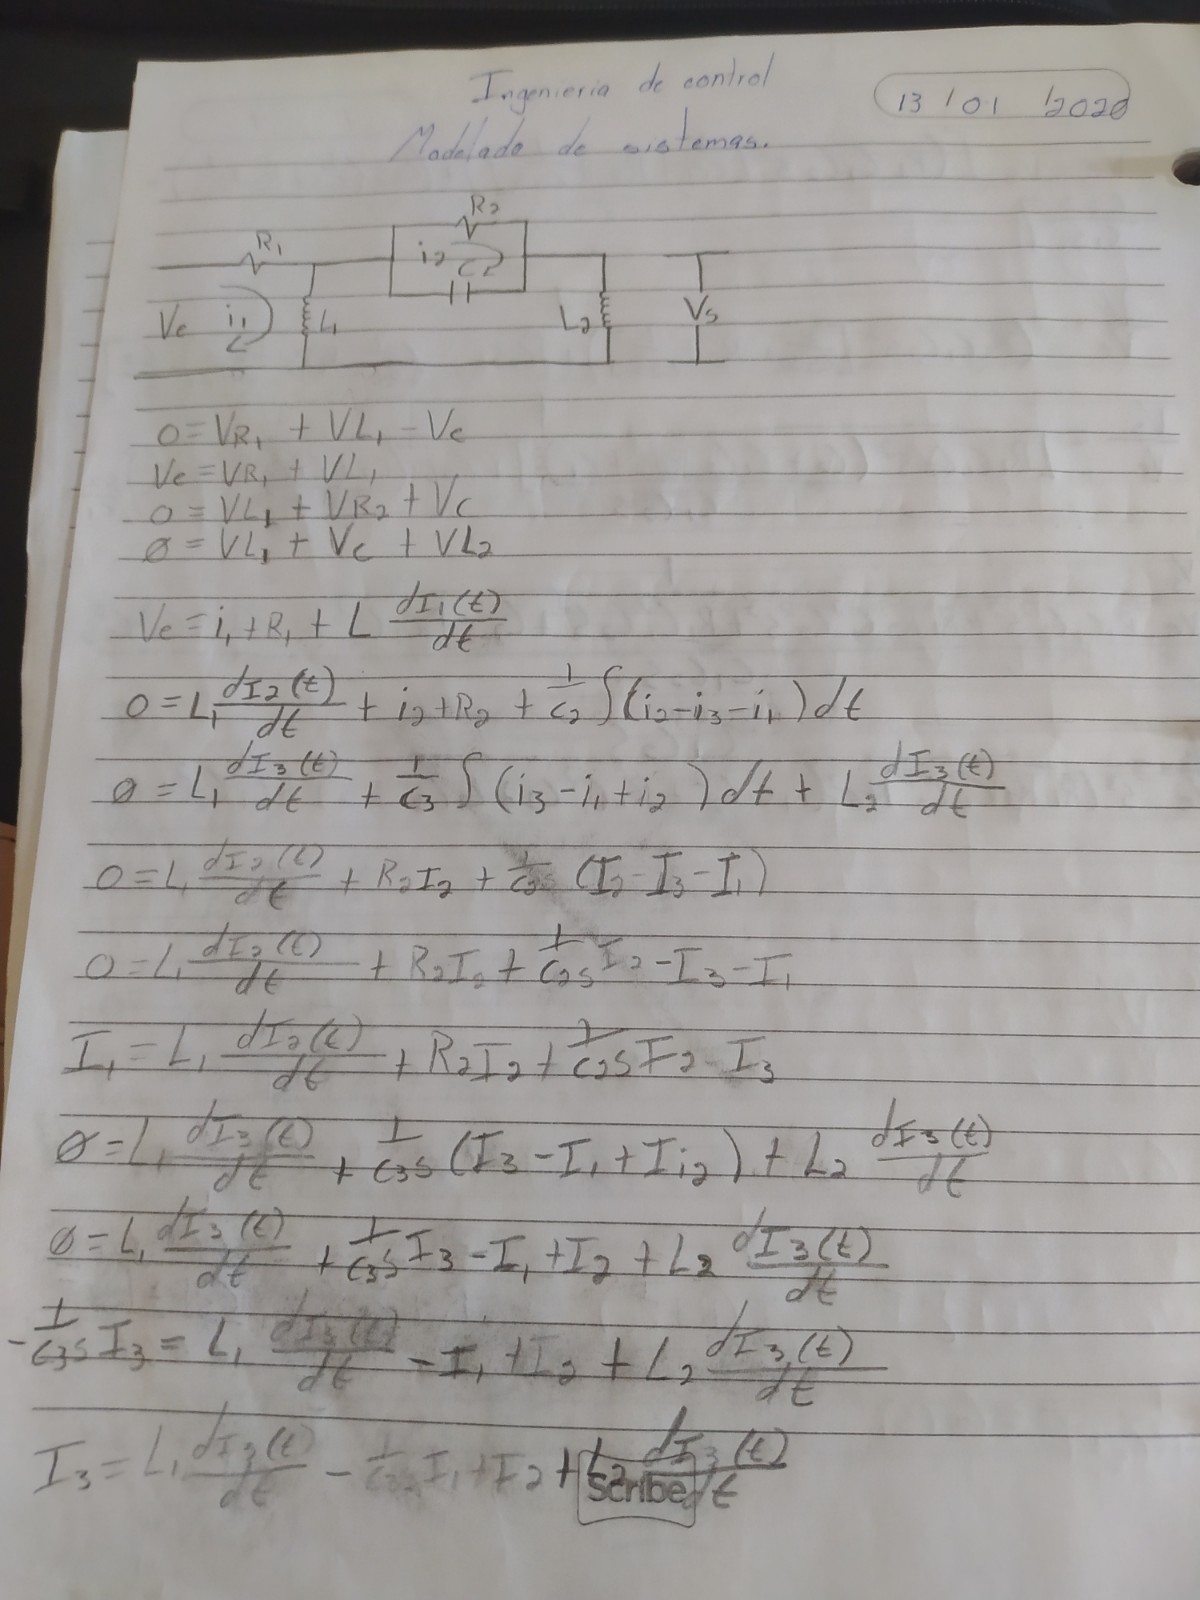 Ingenieria de control
13 / 01 / 2020
Modelado de sistemas.
R2
R1
i2
C2
Ve i1 L1 L2 Vs
0 = VR1 + VL1 - Ve
Ve = VR1 + VL1
0 = VL1 + VR2 + Vc
Ø = VL1 + Vc + VL2
Ve = i1 + R1 + L dI1(t)/dt
0 = L1 dI2(t)/dt + i2 + R2 + 1/C2 ∫(i2 - i3 - i1) dt
Ø = L1 dI3(t)/dt + 1/C3 ∫(i3 - i1 + i2) dt + L2 dI3(t)/dt
0 = L1 dI2(t)/dt + R2I2 + 1/C2S (I2 - I3 - I1)
0 = L1 dI2(t)/dt + R2I2 + 1/C2S I2 - I3 - I1
I1 = L1 dI2(t)/dt + R2I2 + 1/C2S I2 - I3
Ø = L1 dI3(t)/dt + 1/C3S (I3 - I1 + Ii2) + L2 dI3(t)/dt
Ø = L1 dI3(t)/dt + 1/C3S I3 - I1 + I2 + L2 dI3(t)/dt
-1/C3S I3 = L1 dI3(t)/dt - I1 + I2 + L2 dI3(t)/dt
I3 = L1 dI3(t)/dt - I1 + I2 + L2 dI3(t)/dt
Scribe